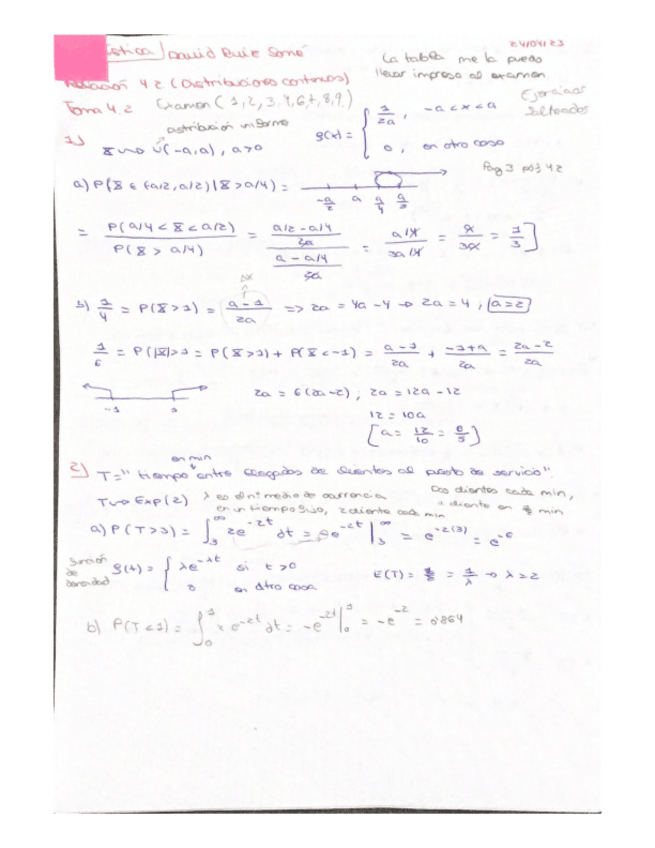 ística / David Ruiz Somé
24/04/23
La tabla me la puedo
llevar impresa al examen
Relación 4.2 (Distribuciones continuas)
Tema 4.2 Examen (1,2,3,4,6,7,8,9)
Ejercicios
Salteados
distribución uniforme
1) X ~> U(-a,a), a>0
f(x) = { 1/2a, -a<x<a
0, en otro caso
Pag 3 pdf 4.2
a) P(X ∈ (a/2,a/2) | X > a/4) =
-a/2 a a/4 a/2
= P(a/4 < X < a/2) / P(X > a/4) = (a/2 - a/4 / 2a) / (a - a/4 / 2a) = a/4 / 3a/4 = a/3a = 1/3]
b) 1/4 = P(X>1) = a-1/2a => 2a = 4a-4 → 2a=4; a=2
1/6 = P(|X|>1 = P(X>1) + P(X<-1) = a-1/2a + -1+a/2a = 2a-2/2a
-1 1
2a = 6(2a-2); 2a = 12a-12
12 = 10a
[a = 12/10 = 6/5]
en min
2) T = "tiempo entre llegadas de clientes al puesto de servicio".
T ~> Exp(2) λ es el nº medio de ocurrencia
en un tiempo fijo, 2 cliente cada min
Dos clientes cada min,
1 cliente en ½ min
a) P(T>3) = ∫₃^∞ 2e^-2t dt = -e^-2t |₃^∞ = e^-2(3) = e^-6
función
de
densidad
f(t) = { λe^-λt si t>0
0 en otro caso
E(T) = ½ = 1/λ → λ=2
b) P(T<1) = ∫₀^1 2e^-2t dt = -e^-2t |₀^1 = -e^-2 = 0'864